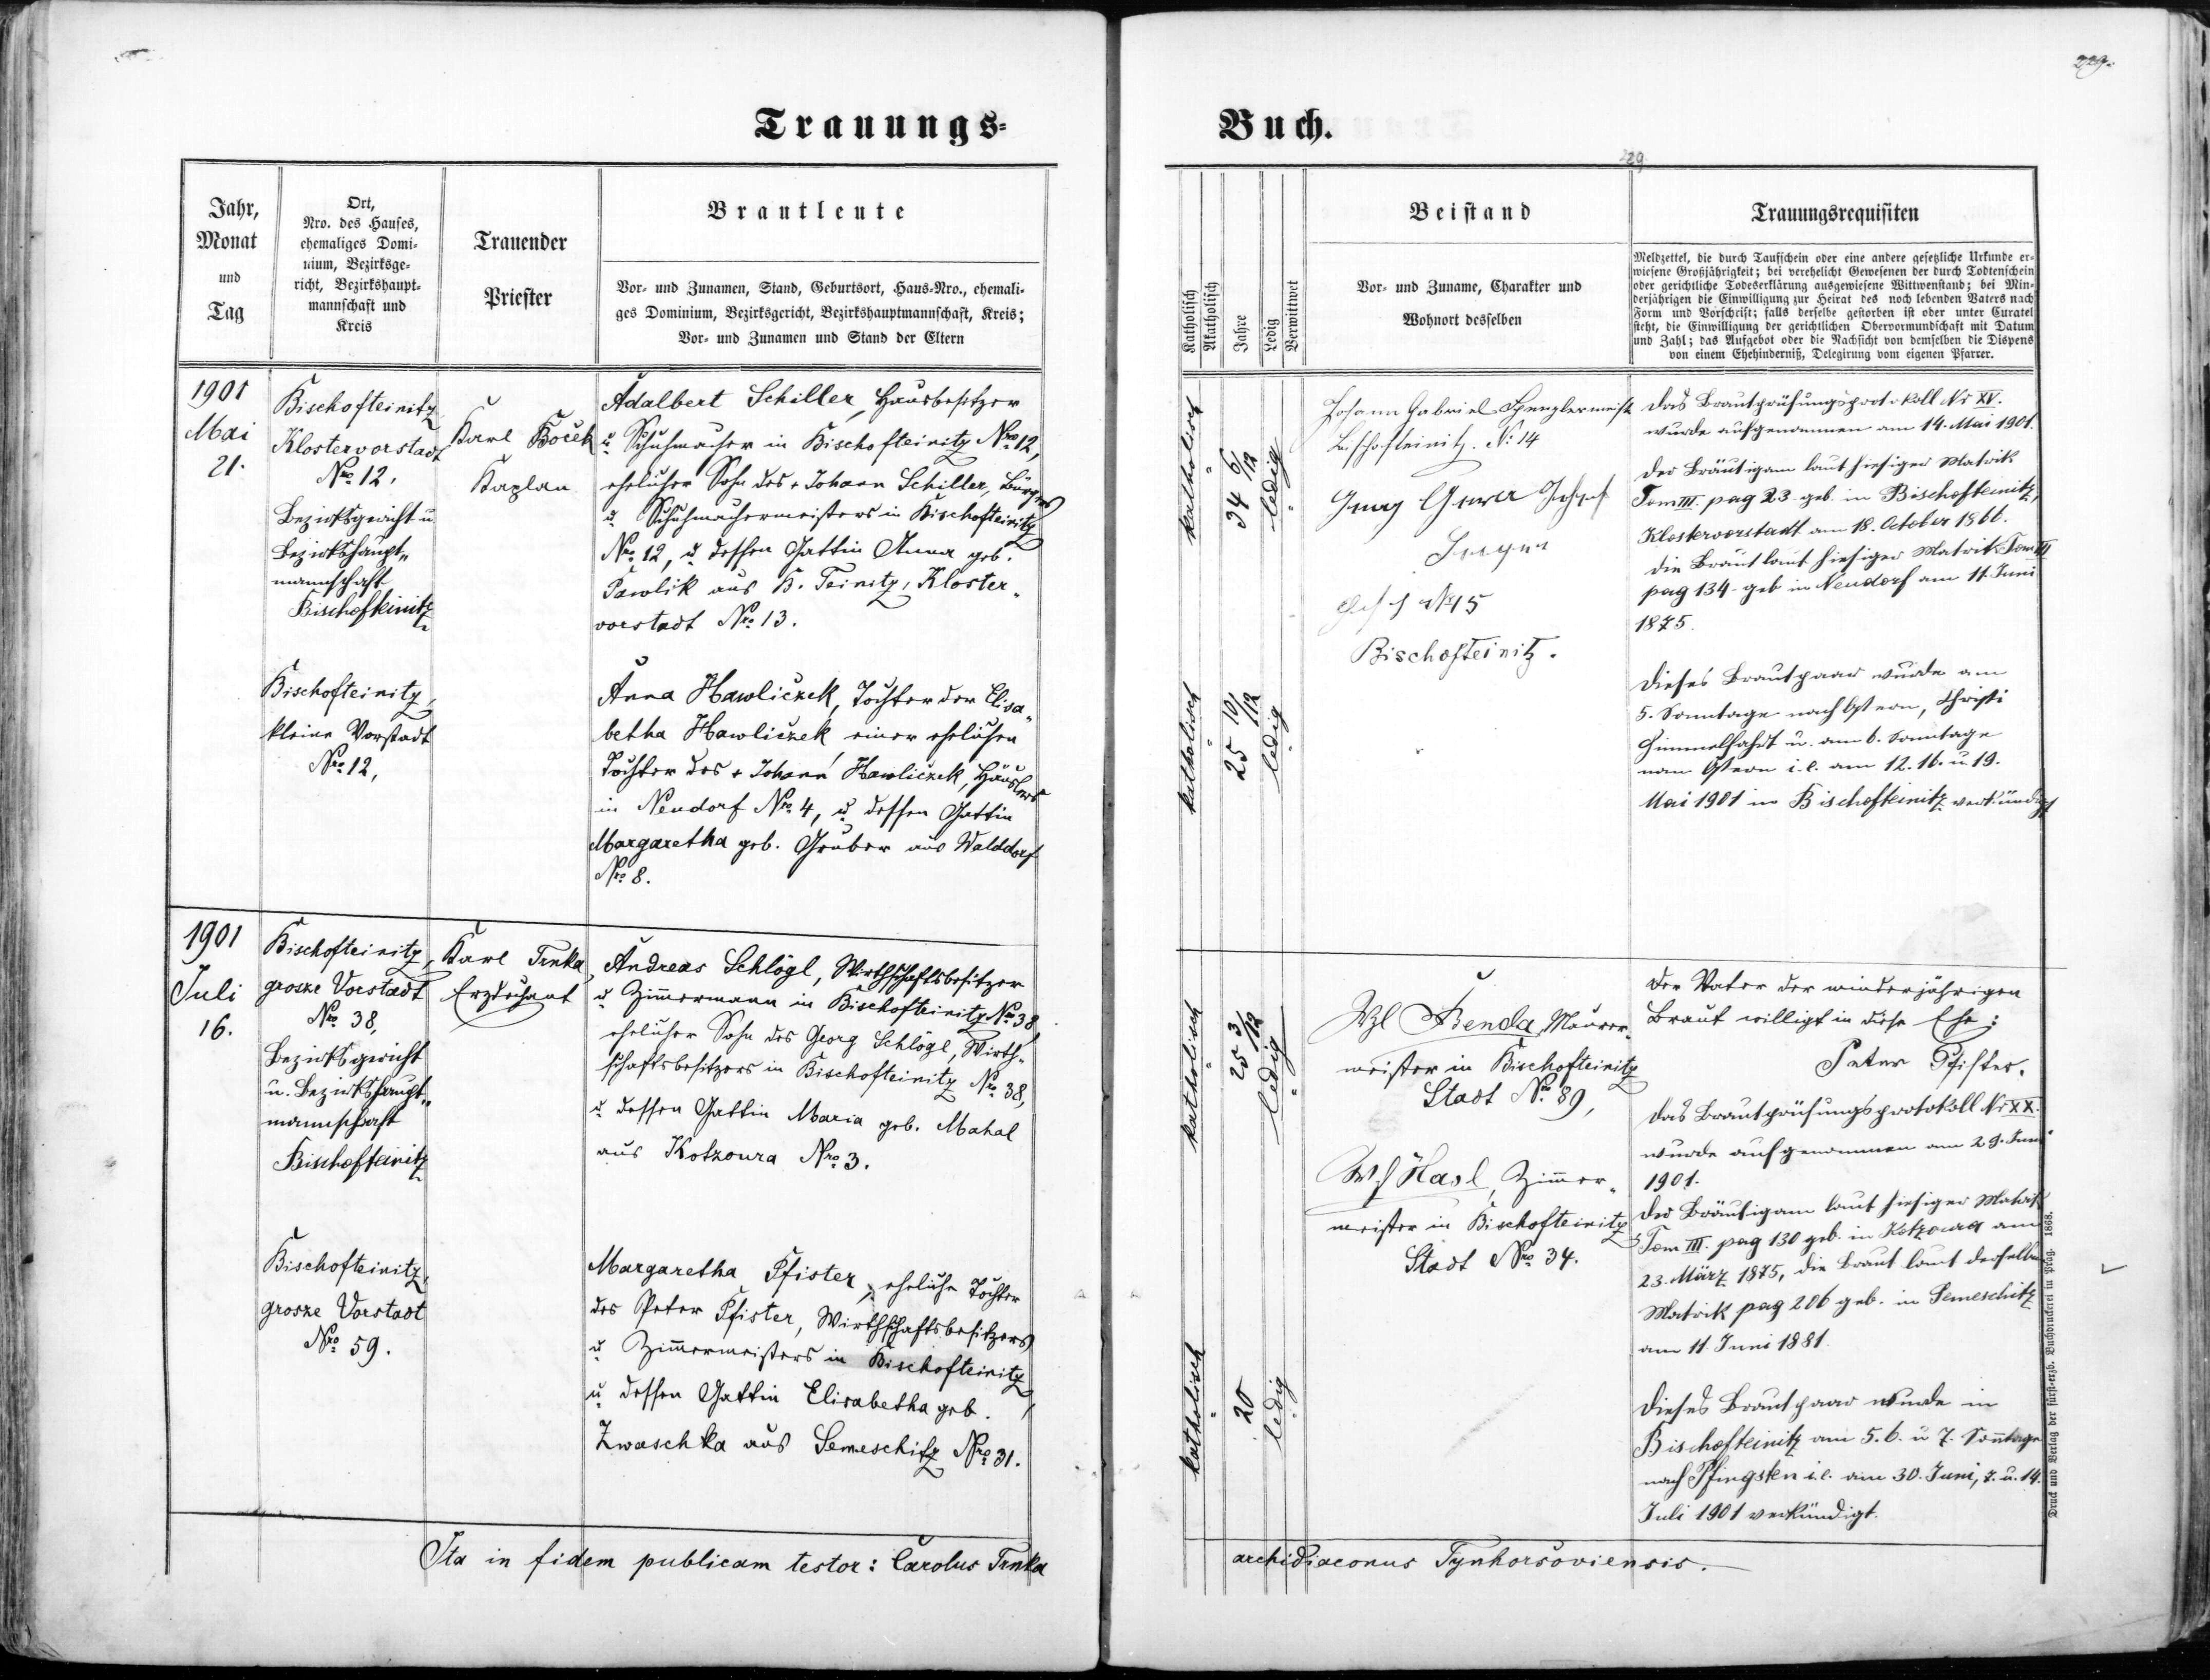 229.
Trauungs-
Buch.
229
Jahr,
Monat
und
Tag
Ort,
Nro. des Hauses,
ehemaliges Domi-
nium, Bezirksge-
richt, Bezirkshaupt-
mannschaft und
Kreis
Trauender
Priester
Brautleute
Vor- und Zunamen, Stand, Geburtsort, Haus-Nro., ehemali-
ges Dominium, Bezirksgericht, Bezirkshauptmannschaft, Kreis;
Vor- und Zunamen und Stand der Eltern
Katholisch
Akatholisch
Jahre
Ledig
Verwittwet
Beistand
Vor- und Zuname, Charakter und
Wohnort desselben
Trauungsrequisiten
Meldzettel, die durch Taufschein oder eine andere gesetzliche Urkunde er-
wiesene Großjährigkeit; bei verehelicht Gewesenen der durch Todtenschein
oder gerichtliche Todeserklärung ausgewiesene Wittwenstand; bei Min-
derjährigen die Einwilligung zur Heirat des noch lebenden Vaters nach
Form und Vorschrift; falls derselbe gestorben ist oder unter Curatel
steht, die Einwilligung der gerichtlichen Obervormundschaft mit Datum
und Zahl; das Aufgebot oder die Nachsicht von demselben die Dispens
von einem Ehehinderniß, Delegirung vom eigenen Pfarrer.
1901
Mai
21.
Bischofteinitz
Klostervorstadt
Nro 12,
Bezirksgericht u
Bezirkshaupt„
mannschaft
Bischofteinitz
Karl Boček
Kaplan
Adalbert Schiller, Hausbesitzer
u Schuhmacher in Bischofteinitz Nro 12,
ehelicher Sohn des + Johann Schiller, Bürgers
u Schuhmachermeisters in Bischofteinitz
Nro 12, u dessen Gattin Anna geb.
Pawlik aus B. Teinitz, Kloster„
vorstadt Nro 13.
katholisch
34 6/12
ledig
Johann Gabriel Spenglermeist
Bischofteinitz. No 14
Georg
No 15
Bischofteinitz.
Das Brautprüfungsprotokoll Nr XV.
wurde aufgenommen am 14. Mai 1901.
Der Bräutigam laut hiesiger Matrik
Tom III. pag 23 geb. in Bischofteinitz,
Klostervorstadt am 18. October 1866.
die Braut laut hiesiger Matrik Tom III
pag 134 geb in Neudorf am 11. Juni
1875.
Dieses Brautpaar wurde am
5. Sonntage nach Ostern, Christi
Himmelfahrt u. am 6. Sonntage
nach Ostern i. e. am 12. 16. u. 19.
Mai 1901 in Bischofteinitz verkündigt
Bischofteinitz,
kleine Vorstadt
Nro 12,
Anna Hawliczek, Tochter der Elisa„
betha Hawliczek einer ehelichen
Tochter des + Johann Hawliczek, Häuslers
in Neudorf Nro 4, u dessen Gattin
Margaretha geb. Gruber aus Walddorf
Nro 8.
katholisch
25 10/12
ledig
1901
Juli
16.
Bischofteinitz,
grosze Vorstadt
Nro 38,
Bezirksgericht
u. Bezirkshaupt„
mannschaft
Bischofteinitz
Karl Trnka
Erzdechant
Andreas Schlögl, Wirthschaftsbesitzer
u Zimmermann in Bischofteinitz No 38,
ehelicher Sohn des Georg Schlögl, Wirth„
schaftsbesitzers in Bischofteinitz Nro 38,
u dessen Gattin Maria geb. Mahal
aus Kotzoura Nro 3.
katholisch
25 3/12
ledig
Wzl Benda, Maurer„
meister in Bischofteinitz
Stadt No 89,
Hasl, Zimmer„
meister in Bischofteinitz
Stadt Nro 34.
Der Vater der minderjährigen
Braut willigt in diese Ehe:
Peter Pfister.
Das Brautprüfungsprotokoll Nr XX.
wurde aufgenommen am 29. Juni
1901.
Der Bräutigam laut hiesiger Matrik
Tom III. pag 130 geb. in Kotzoura am
23. März 1875, die Braut laut derselben
Matrik pag 206 geb. in Semeschitz
am 11. Juni 1881.
Dieses Brautpaar wurde in
Bischofteinitz am 5. 6. u 7. Sonntage
nach Pfingsten i. e. am 30. Juni, 7. u. 14.
Juli 1901 verkündigt.
Bischofteinitz,
grosze Vorstadt
Nro 59.
Margaretha Pfister, eheliche Tochter
des Peter Pfister, Wirthschaftsbesitzers
u Zimmermeisters in Bischofteinitz,
u dessen Gattin Elisabetha geb.
Zwaschka aus Semeschitz Nro 31.
katholisch
20
ledig
Ita in fidem publicam testor: Carolus Trnka
archidiaconus Tynhorsoviensis.
Druck und Verlag der fürst-erzb. Buchdruckerei in Prag. 1868.